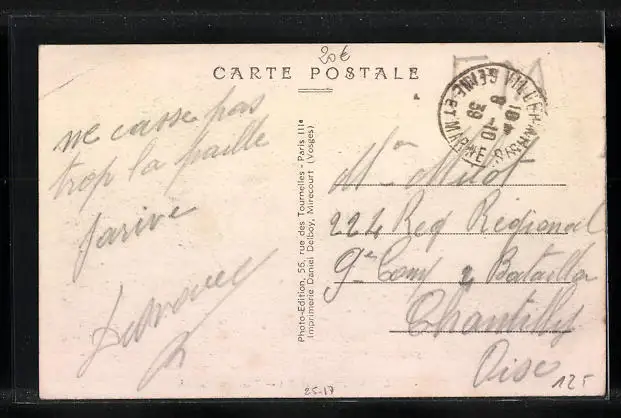 20€
CARTE POSTALE
SEINE-ET-MARNE
18 H
8-10
39
ne casse pas
trop la paille
j'arive
Photo-Edition, 56, rue des Tournelles - Paris IIIe
Imprimerie Daniel Delboy, Mirecourt (Vosges)
Mr Milot
224 Reg Régional
9e Comp 2 Bataillon
Chantilly
Oise
25-17
12F